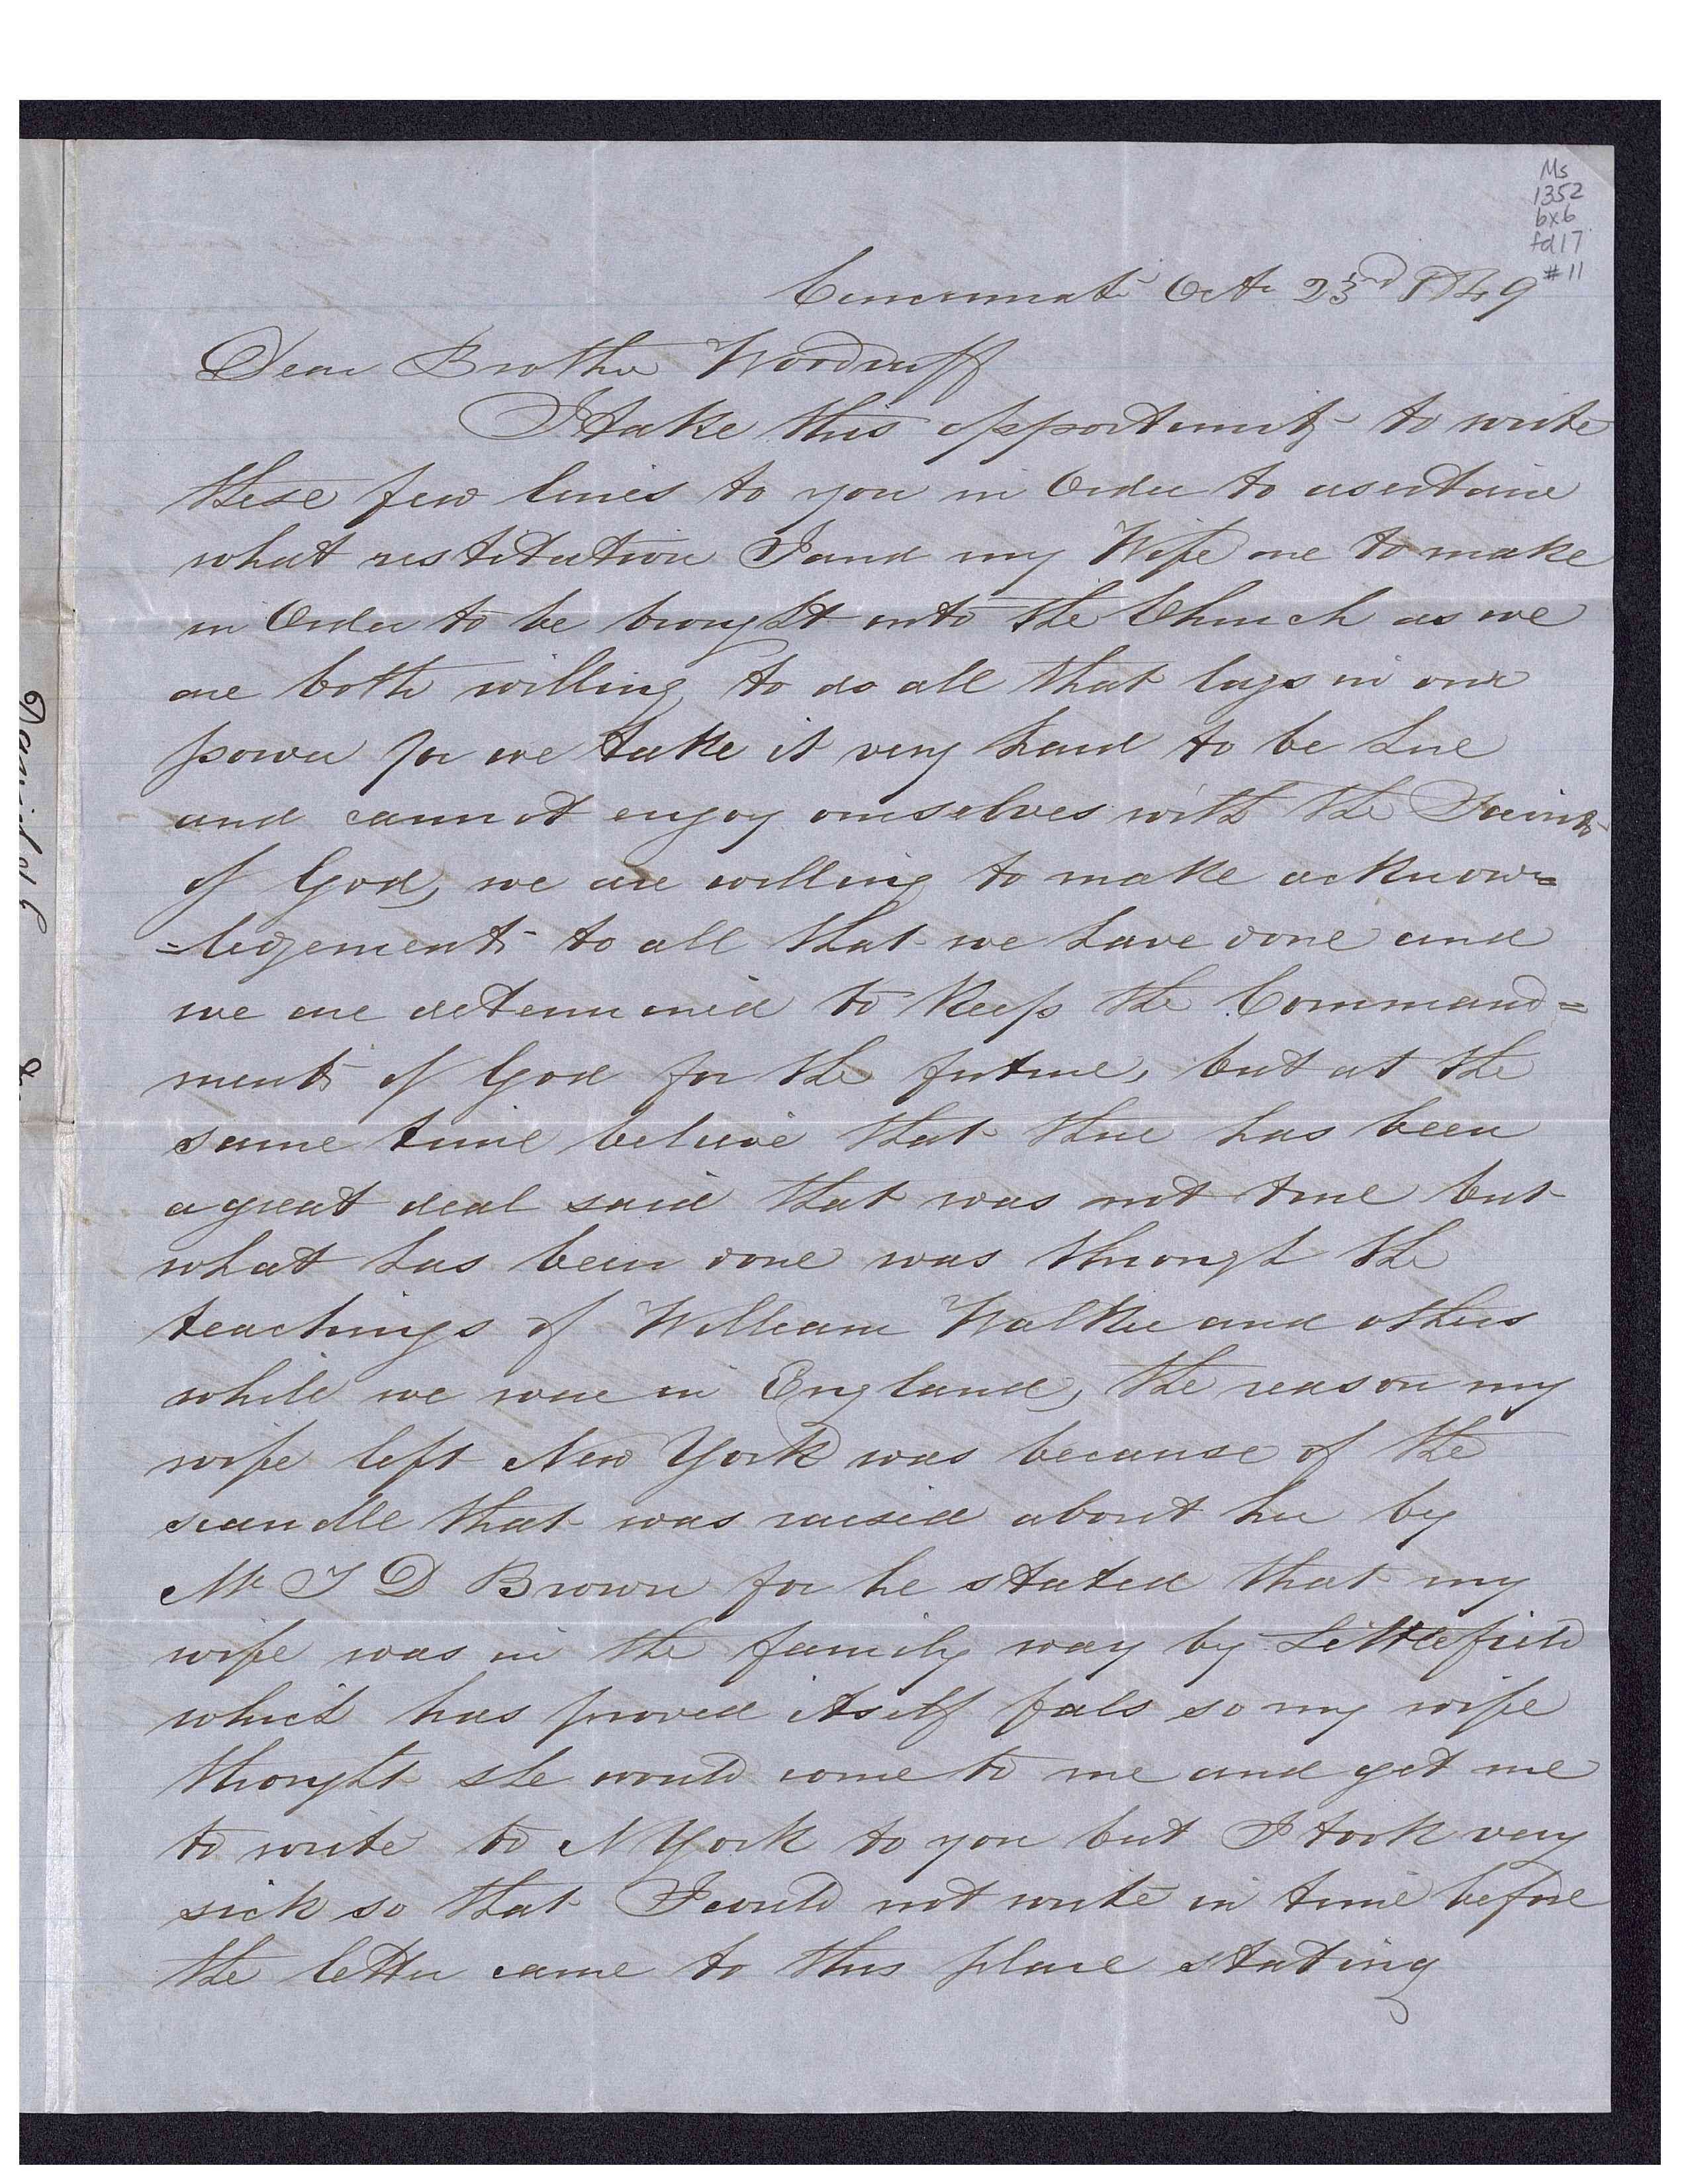 Ms
1352
bx6
fd17
#11
Cincinnati Oct 23rd 1849
Dear Brother Woodruff
I take this opportunity to write
these few lines to you in Order to asertaine
what restitution I and my Wife are to make
in Order to be brought into the Church as we
are both willing to do all that lays in our
power for we take it very hard to be here
and cannot enjoy ourselves with the Saints
of God, we are willing to make acknow=
=ledgements to all that we have done and
we are determined to Keep the Command=
ments of God for the future, but at the
same time believe that there has been
a great deal said that was not true but
what has been done was through the
teachings of William Walker and others
while we were in England, the reason my
wife left New York was because of the
scandle that was raised about her by
Mr T D Brown for he stated that my
wife was in the family way by Littlefield
which has proved itself fals so my wife
thought she would come to me and get me
to write to N York to you but I took very
sick so that I could not write in time before
the letter came to this place stating